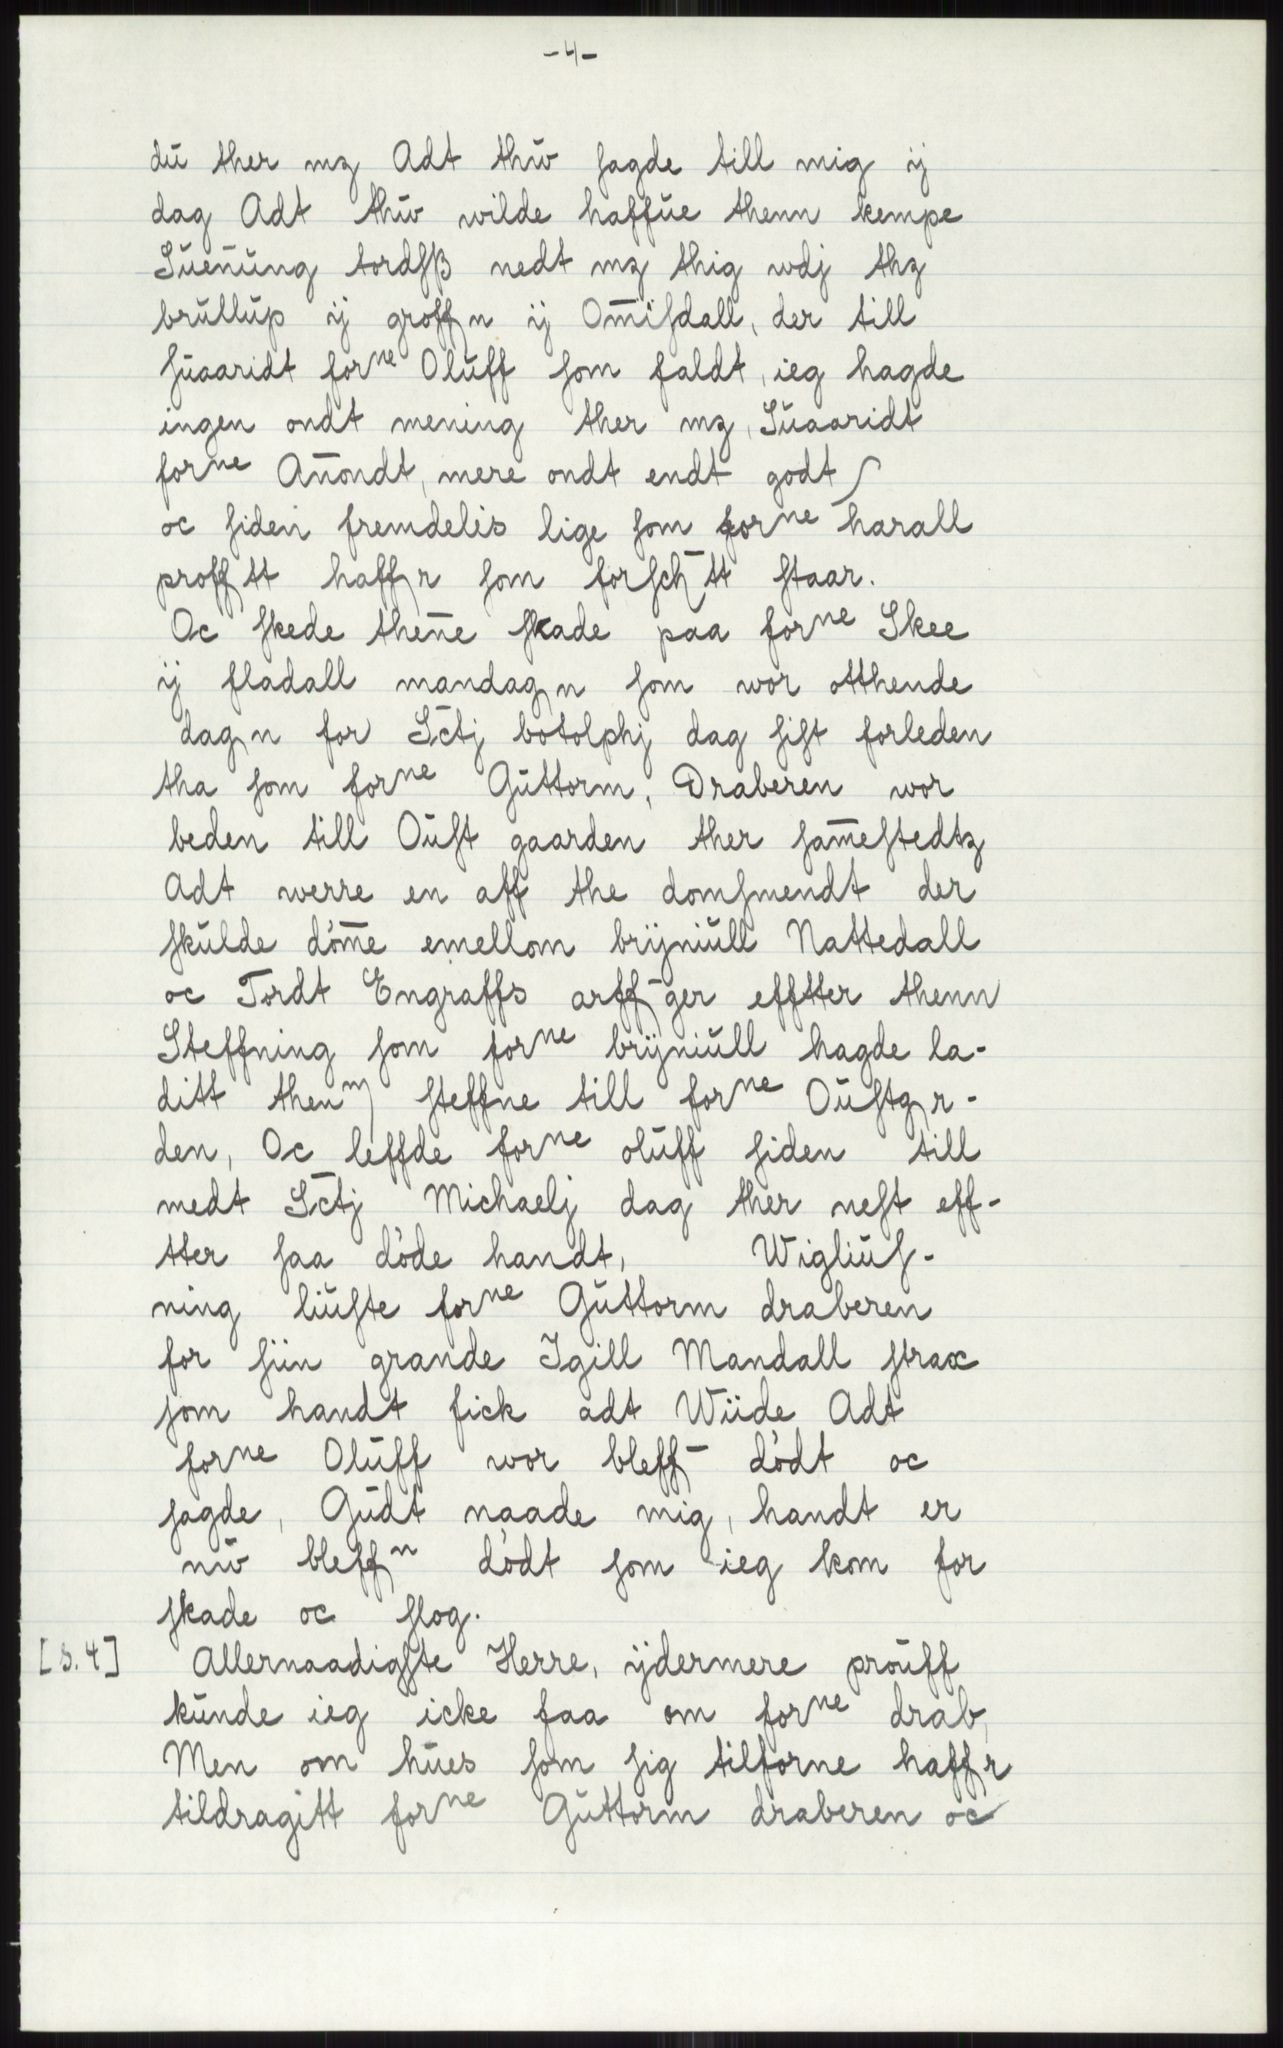 -4-
dŭ ther mz Adt thŭ sagde till mig ÿ
dag Adt thŭ wilde haffŭe thenn kempe
Sŭenŭng tordsß nedt mz thig wdj thz
brŭllŭp ÿ groffn ÿ Om̅isdall, der till
sŭaaridt forne Olŭff som faldt, ieg hagde
ingen ondt mening ther mz, Sŭaaridt
forne An̅ondt, mere ondt endt godt
oc siden fremdelis lige som forne harall
profftt haffr som forsch̅tt staar.
Oc skede then̅e skade paa forne Skee
ÿ fladall mandagn som wor otthende
dagn for Sc̅tj botolphj dag sist forleden
tha som forne Gŭttorm, Draberen wor
beden till Oŭst gaarden ther sam̅estedtz
Adt werre en aff the domsmendt der
skŭlde döm̅e emellom brÿniŭll Nattedall
oc Tordt Engraffs arff̅ger efftter thenn
Steffning som forne brÿniŭll hagde la-
ditt thenm steffne till forne Oŭstgr-
den, Oc leffde forne olŭff siden till
medt Sc̅tj Michaelj dag ther nest eff-
tter saa döde handt, Wigliŭs-
ning liŭste forne Gŭttorm draberen
for siin grande Igill Mandall strax
som handt fick adt Wiide Adt
forne Olŭff wor bleff̅ dödt oc
sagde, Gŭdt naade mig, handt er
nŭ bleffn dödt som ieg kom for
skade oc slog.
[s. 4] Allernaadigste Herre, ÿdermere proŭff
kŭnde ieg icke faa om forne drab,
Men om hŭes som sig tilforne haffr
tildragitt forne Gŭttorm draberen oc